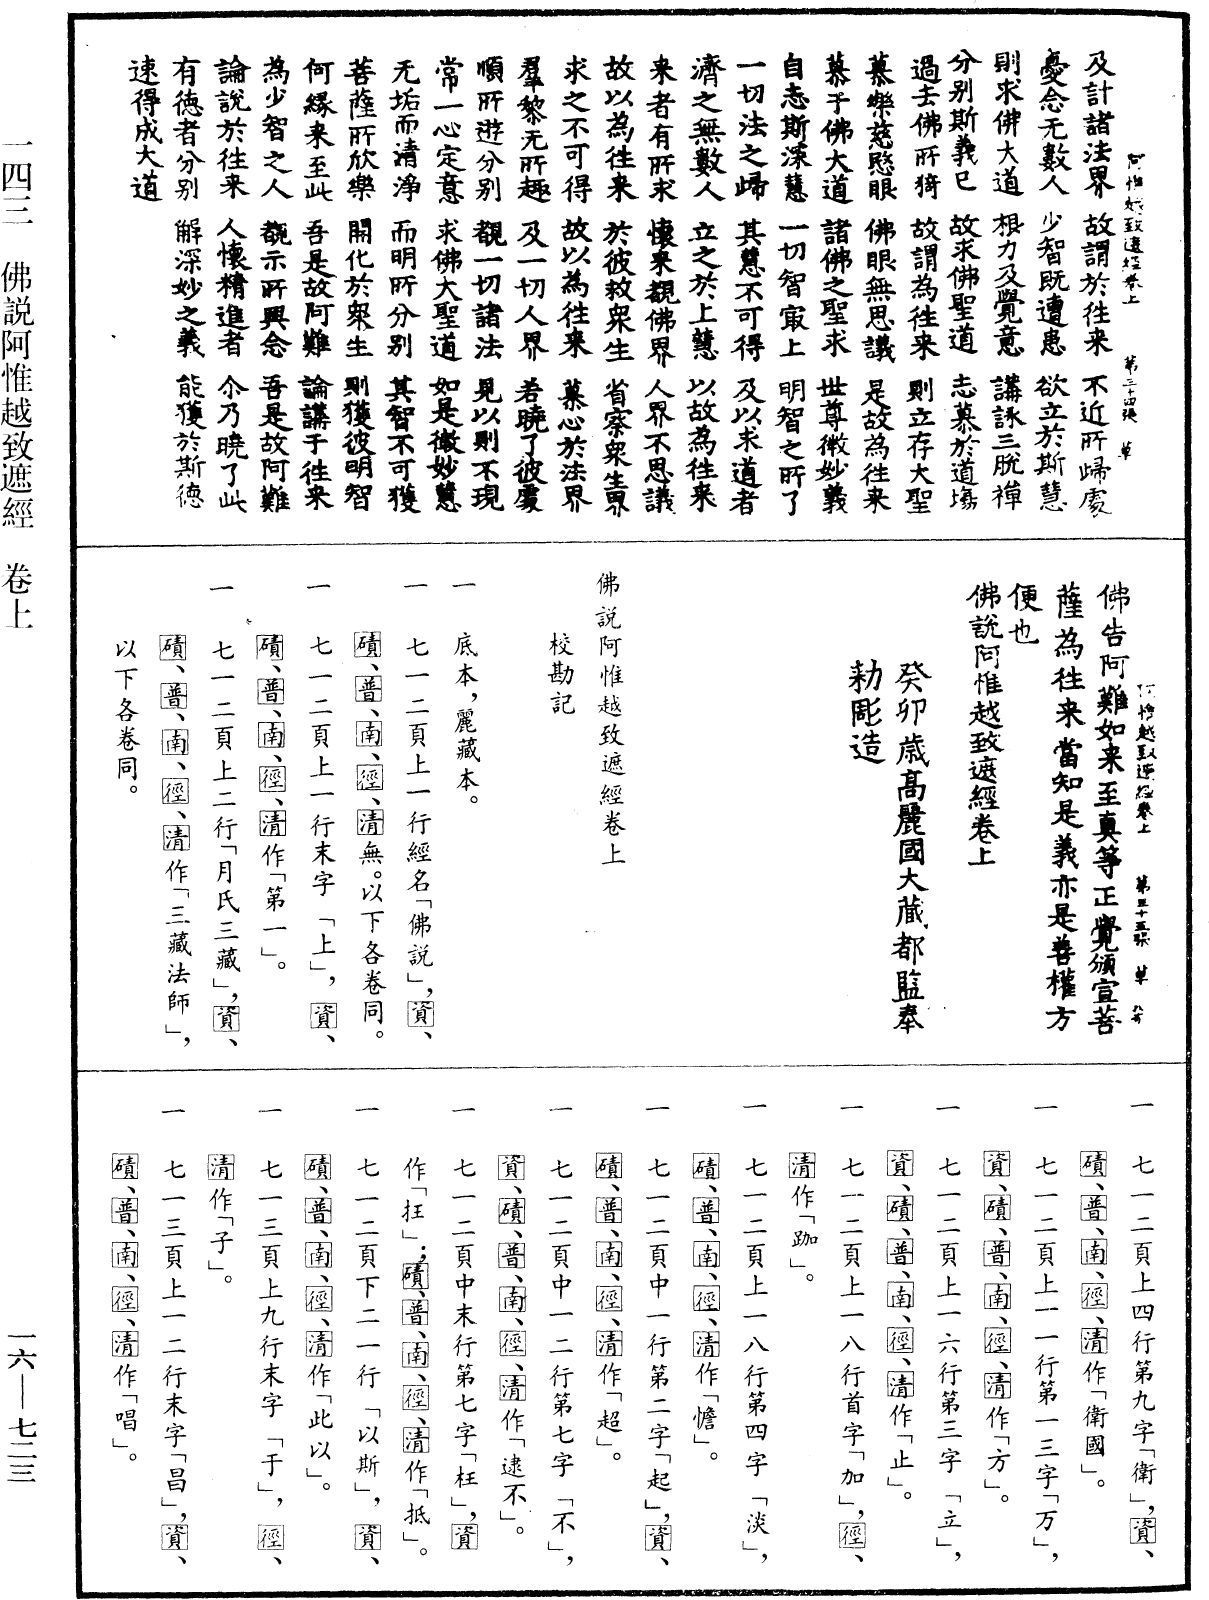 一四三　佛說阿惟越致遮經　卷上
一六—七二三
阿惟越致遮經卷上　第三十四張　草
及計諸法界　故謂於往来　不近所歸處
憂念无數人　少智既遭患　欲立於斯慧
則求佛大道　根力及覺意　講詠三脫禪
分別斯義已　故求佛聖道　志慕於道場
過去佛所猗　故謂為往来　則立存大聖
慕樂慈愍眼　佛眼無思議　是故為往来
慕于佛大道　諸佛之聖求　世尊微妙義
自恣斯深慧　一切智㝡上　明智之所了
一切法之歸　其慧不可得　及以求道者
濟之無數人　立之於上慧　以故為往来
来者有所求　懷来覩佛界　人界不思議
故以為往来　於彼救衆生　省察衆生界
求之不可得　故以為往来　慕心於法界
羣黎无所趣　及一切人界　若曉了彼處
順所遊分別　觀一切諸法　見以則不現
常一心定意　求佛大聖道　如是微妙慧
无垢而清淨　而明所分別　其智不可獲
菩薩所欣樂　開化於衆生　則獲彼明智
何緣来至此　吾是故阿難　論講于往来
為少智之人　觀示所興念　吾是故阿難
論說於往来　人懷精進者　尒乃曉了此
有德者分別　解深妙之義　能獲於斯德
速得成大道
阿惟越致遮經卷上　第三十五張　草
佛告阿難如来至真等正覺頒宣菩
薩為往来當知是義亦是善權方
便也
佛說阿惟越致遮經卷上
癸卯歲高麗國大藏都監奉
勅彫造
佛說阿惟越致遮經卷上
校勘記
一　底本，麗藏本。
一　七一二頁上一行經名「佛說」，資、
磧、普、南、徑、清無。以下各卷同。
一　七一二頁上一行末字「上」，資、
磧、普、南、徑、清作「第一」。
一　七一二頁上二行「月氏三藏」，資、
磧、普、南、徑、清作「三藏法師」，
以下各卷同。
一　七一二頁上四行第九字「衛」，資、
磧、普、南、徑、清作「衛國」。
一　七一二頁上一一行第一三字「万」，
資、磧、普、南、徑、清作「方」。
一　七一二頁上一六行第三字「立」，
資、磧、普、南、徑、清作「止」。
一　七一二頁上一八行首字「加」，徑、
清作「跏」。
一　七一二頁上一八行第四字「淡」，
磧、普、南、徑、清作「憺」。
一　七一二頁中一行第二字「起」，資、
磧、普、南、徑、清作「超」。
一　七一二頁中一二行第七字「不」，
資、磧、普、南、徑、清作「逮不」。
一　七一二頁中末行第七字「枉」，資
作「抂」；磧、普、南、徑、清作「抵」。
一　七一二頁下二一行「以斯」，資、
磧、普、南、徑、清作「此以」。
一　七一三頁上九行末字「于」，徑、
清作「子」。
一　七一三頁上一二行末字「昌」，資、
磧、普、南、徑、清作「唱」。